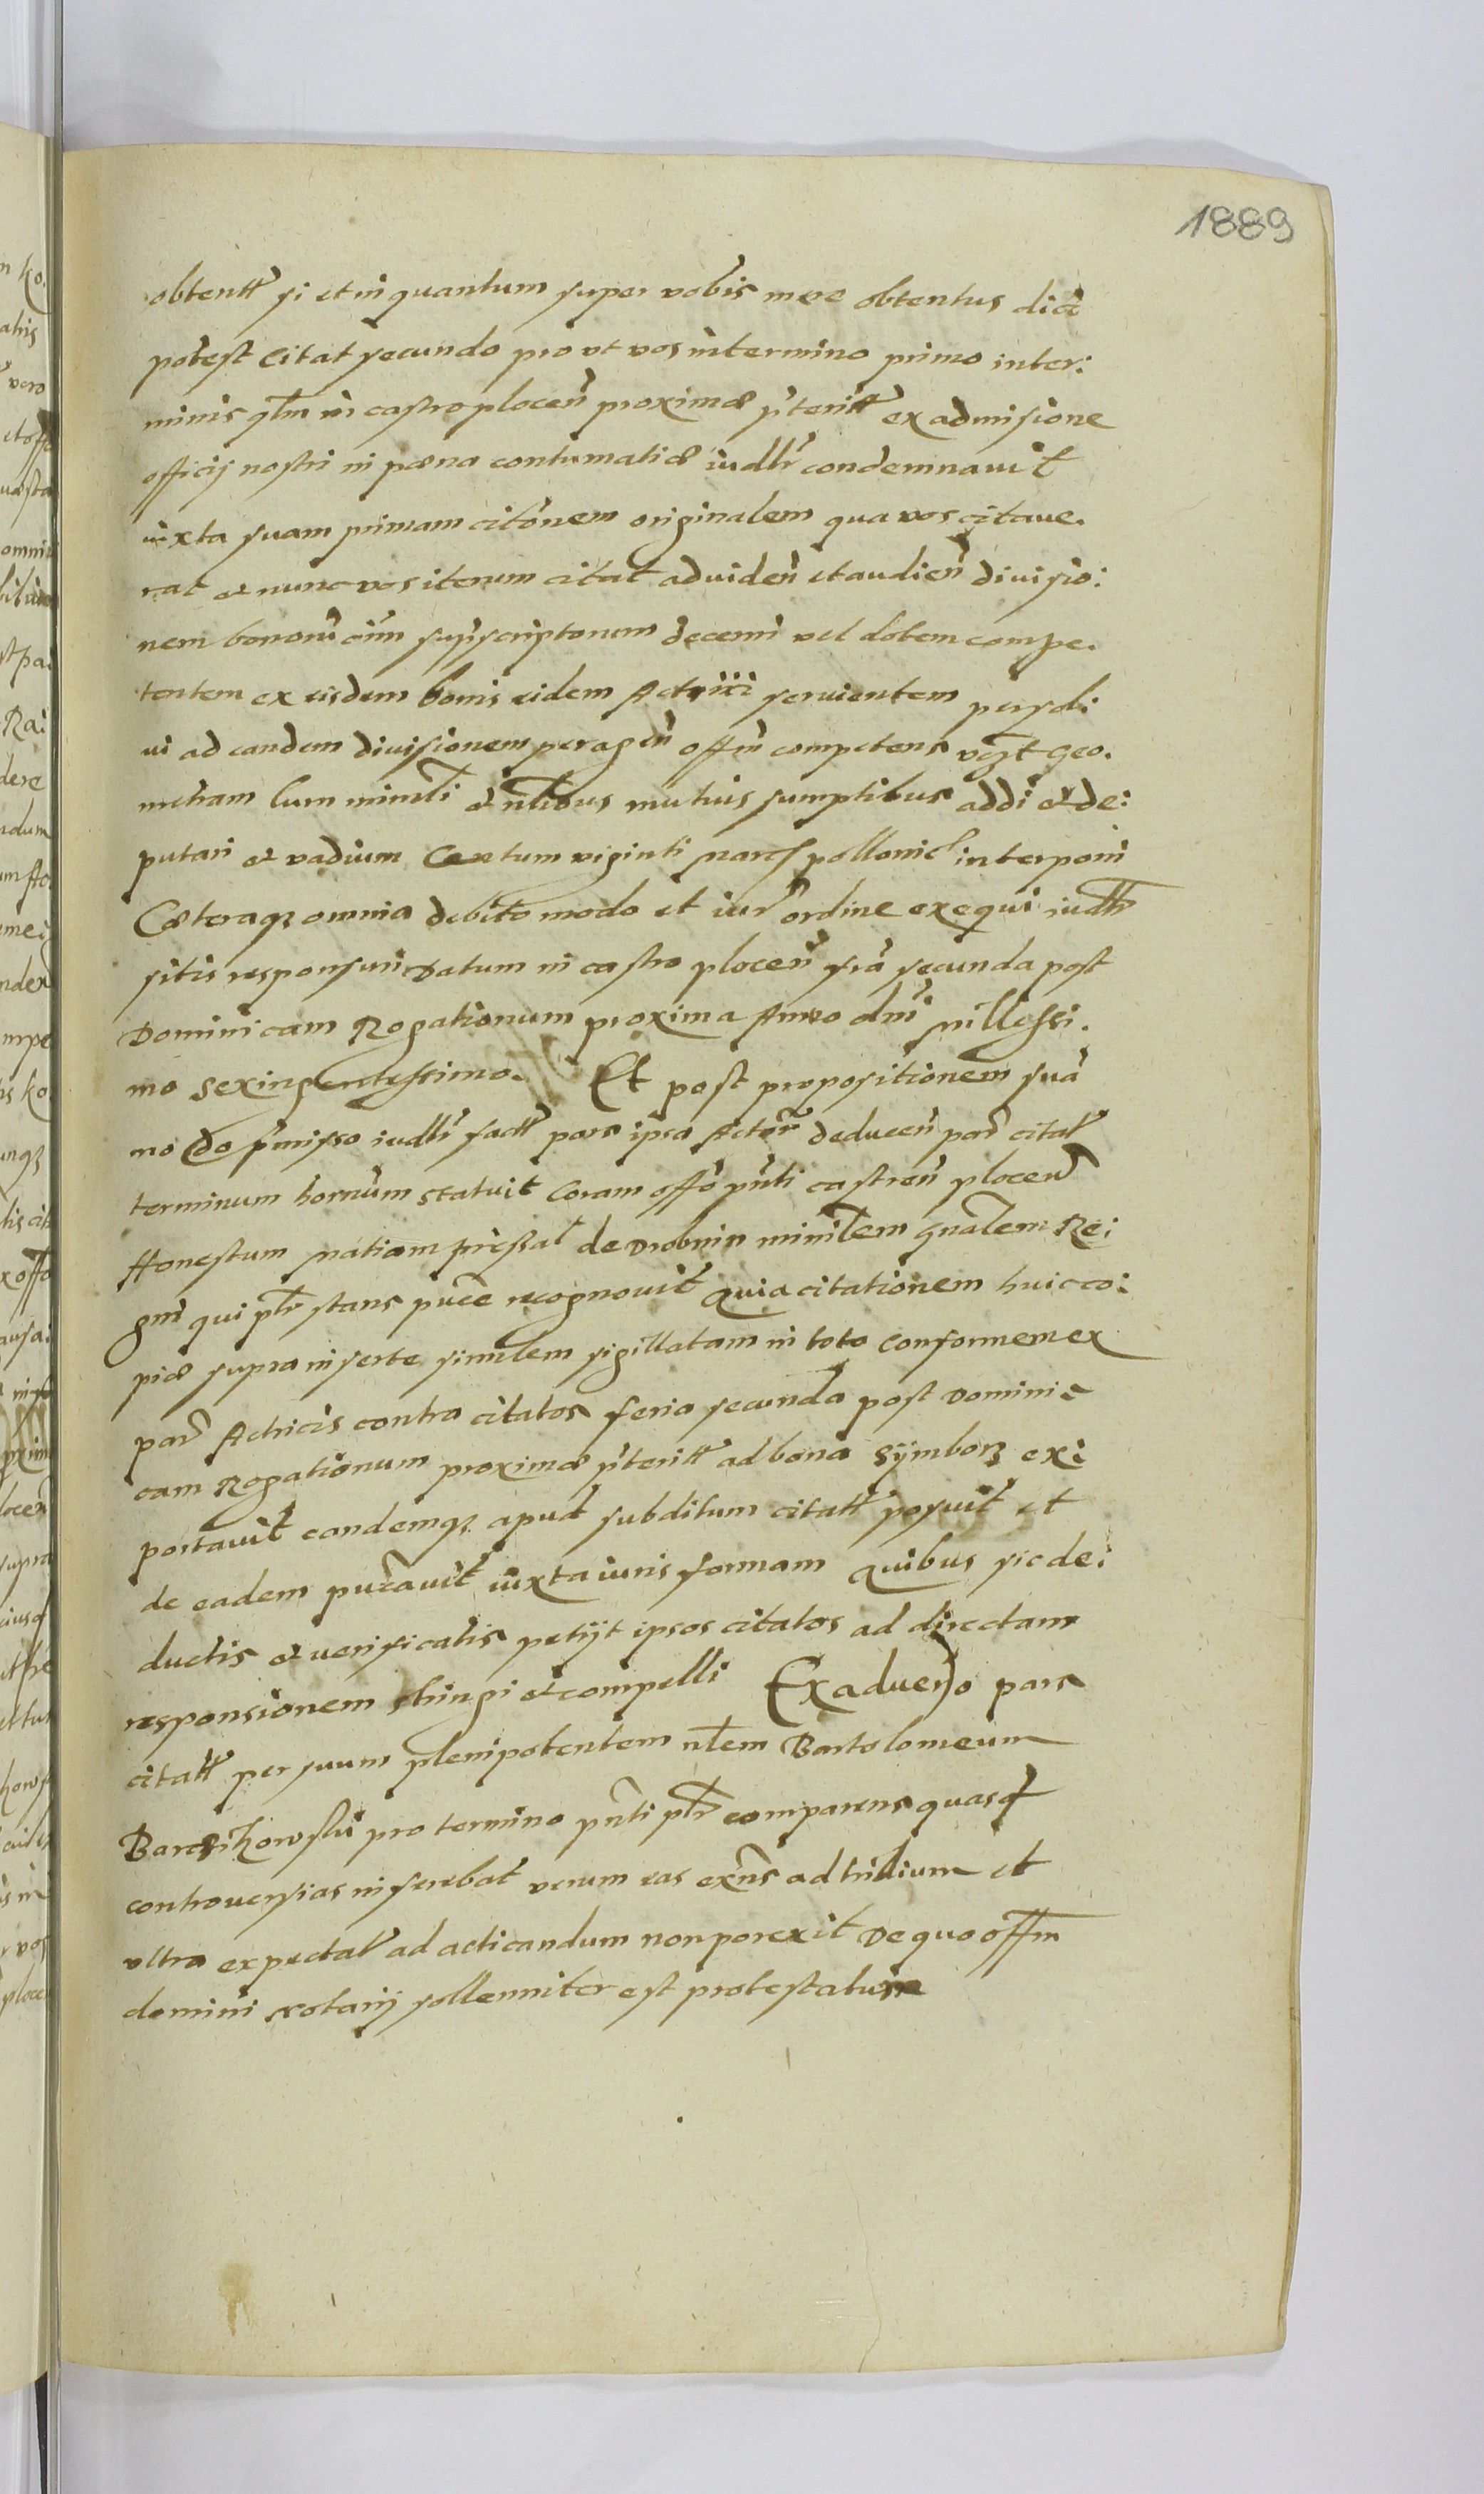 1889
obtentt si et in quantum super vobis mere obtentus dici
potest Citat secundo prout vos in termino primo inter:
minis qlm in castro plocen proximæ pteritt ex admisione
officij nostri in pœna contumatiæ iudlr condemnavit
iuxta suam primam citonem originalem qua vos citave.
rat et nunc vos iterum citat ad viden et audien divisio:
nem bonoru oim suprscriptorum decerni vel dotem compe.
tentem ex eisdem bonis eidem Actrici servientem persol:
vi ad eandem divisionem peragen offm competens vgzt Geo.
metram Cum ministli et nlibus mutuis sumptibus addi et de:
putari et vadium Centum viginti marcs pollonicl interponi
Cæteraqz omnia debito modo et iur ordine exequi iudlr
sitis responsuri Datum in castro plocen fria secunda post
Dominicam Rogationum proxima Anno dni millessi.
mo sexingentessimo. Et post propositionem sua
modo pmisso iudlr factt pars ipsa Actor deducen par citat
terminum hornum statuit Coram offo pnti castren plocen
Honestum Matiam pressat de Drobnin minilem gnalem Re:
gni qui plr stans puce recognovit Quia citationem huic co:
piæ supra inserte similem sigillatam in toto Conformem ex
par Actricis contra citatos feria secunda post Domini:
cam Rogationum proximæ pteritt ad bona Syimborz ex:
portavit eandemqz apud subditum citatt posuit et
de eadem pucavit iuxta iuris formam Quibus sic de:
ductis et verificatis petijt ipsos citatos ad directam
responsionem stringi et compelli Ex adverso pars
citatt per suum plenipotentem nlem Bartolomeum
Barczikowski pro termino pnti plr comparens quasd
controversias inferebat verum eas exns ad tridium et
ultra expectat ad acticandum non porexit De quo offm
domini notarij sollenniter est protestatus